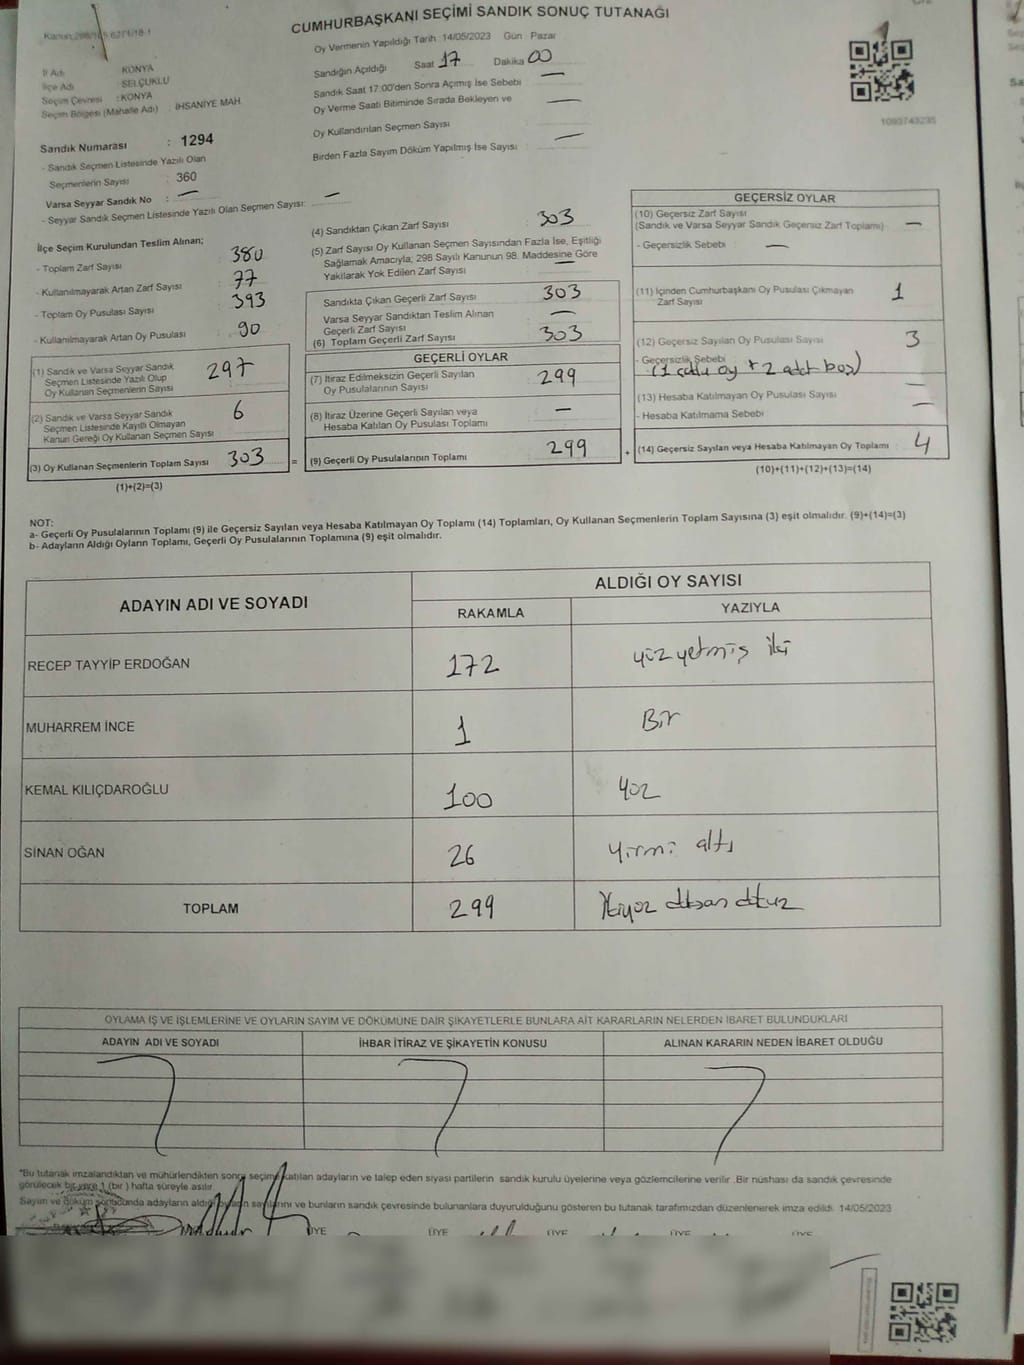 CUMHURBAŞKANI SEÇİMİ SANDIK SONUÇ TUTANAĞI
Oy Vermenin Yapıldığı Tarih :14/05/2023 Gün : Pazar
Sandığın Açıldığı Saat 17 Dakika 00
Sandık Saat 17:00'den Sonra Açımış İse Sebebi —
Oy Verme Saati Bitiminde Sırada Bekleyen ve
Oy Kullandırılan Seçmen Sayısı —
Birden Fazla Sayım Döküm Yapılmış İse Sayısı —
İl Adı : KONYA
İlçe Adı : SELÇUKLU
Seçim Çevresi : KONYA
Seçim Bölgesi (Mahalle Adı) : İHSANİYE MAH.
1093743235
Sandık Numarası : 1294
- Sandık Seçmen Listesinde Yazılı Olan
Seçmenlerin Sayısı : 360
Varsa Seyyar Sandık No : —
- Seyyar Sandık Seçmen Listesinde Yazılı Olan Seçmen Sayısı: —
İlçe Seçim Kurulundan Teslim Alınan;
- Toplam Zarf Sayısı : 380
- Kullanılmayarak Artan Zarf Sayısı : 77
- Toplam Oy Pusulası Sayısı : 393
- Kullanılmayarak Artan Oy Pusulası : 90
(1) Sandık ve Varsa Seyyar Sandık
Seçmen Listesinde Yazılı Olup
Oy Kullanan Seçmenlerin Sayısı 297
(2) Sandık ve Varsa Seyyar Sandık
Seçmen Listesinde Kayıtlı Olmayan
Kanun Gereği Oy Kullanan Seçmen Sayısı 6
(3) Oy Kullanan Seçmenlerin Toplam Sayısı 303 =
(1)+(2)=(3)
(4) Sandıktan Çıkan Zarf Sayısı 303
(5) Zarf Sayısı Oy Kullanan Seçmen Sayısından Fazla İse, Eşitliği
Sağlamak Amacıyla; 298 Sayılı Kanunun 98. Maddesine Göre
Yakılarak Yok Edilen Zarf Sayısı —
Sandıkta Çıkan Geçerli Zarf Sayısı 303
Varsa Seyyar Sandıktan Teslim Alınan
Geçerli Zarf Sayısı —
(6) Toplam Geçerli Zarf Sayısı 303
GEÇERLİ OYLAR
(7) İtiraz Edilmeksizin Geçerli Sayılan
Oy Pusulalarının Sayısı 299
(8) İtiraz Üzerine Geçerli Sayılan veya
Hesaba Katılan Oy Pusulası Toplamı —
(9) Geçerli Oy Pusulalarının Toplamı 299 +
GEÇERSİZ OYLAR
(10) Geçersiz Zarf Sayısı
(Sandık ve Varsa Seyyar Sandık Geçersiz Zarf Toplamı) —
- Geçersizlik Sebebi —
(11) İçinden Cumhurbaşkanı Oy Pusulası Çıkmayan
Zarf Sayısı 1
(12) Geçersiz Sayılan Oy Pusulası Sayısı 3
- Geçersizlik Sebebi
(13) Hesaba Katılmayan Oy Pusulası Sayısı —
- Hesaba Katılmama Sebebi —
(14) Geçersiz Sayılan veya Hesaba Katılmayan Oy Toplamı 4
(10)+(11)+(12)+(13)=(14)
NOT:
a- Geçerli Oy Pusulalarının Toplamı (9) ile Geçersiz Sayılan veya Hesaba Katılmayan Oy Toplamı (14) Toplamları, Oy Kullanan Seçmenlerin Toplam Sayısına (3) eşit olmalıdır. (9)+(14)=(3)
b- Adayların Aldığı Oyların Toplamı, Geçerli Oy Pusulalarının Toplamına (9) eşit olmalıdır.
ADAYIN ADI VE SOYADI ALDIĞI OY SAYISI
RAKAMLA YAZIYLA
RECEP TAYYİP ERDOĞAN 172 yüz yetmiş iki
MUHARREM İNCE 1 Bir
KEMAL KILIÇDAROĞLU 100 yüz
SİNAN OĞAN 26 yirmi altı
TOPLAM 299 İkiyüz doksan dokuz
OYLAMA İŞ VE İŞLEMLERİNE VE OYLARIN SAYIM VE DÖKÜMÜNE DAİR ŞİKAYETLERLE BUNLARA AİT KARARLARIN NELERDEN İBARET BULUNDUKLARI
ADAYIN ADI VE SOYADI İHBAR İTİRAZ VE ŞİKAYETİN KONUSU ALINAN KARARIN NEDEN İBARET OLDUĞU
*Bu tutanak imzalandıktan ve mühürlendikten sonra seçime katılan adayların ve talep eden siyasi partilerin sandık kurulu üyelerine veya gözlemcilerine verilir .Bir nüshası da sandık çevresinde
görülecek bir yere 1 (bir ) hafta süreyle asılır.
Sayım ve döküm sonucunda adayların aldığı oyların sayılarını ve bunların sandık çevresinde bulunanlara duyurulduğunu gösteren bu tutanak tarafımızdan düzenlenerek imza edildi. 14/05/2023
ÜYE ÜYE ÜYE ÜYE ÜYE